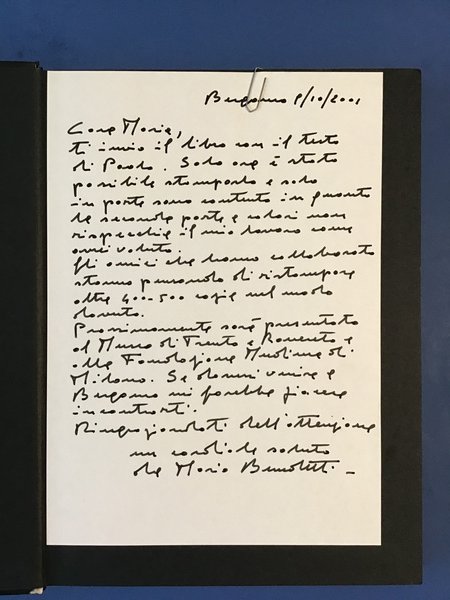 Bergamo 9/10/2001
Cara Maria,
ti invio il libro con il testo
di Paolo. Solo ora è stato
possibile stamparlo e solo
in parte sono contento in quanto
la seconda parte, a colori non
rispecchia il mio lavoro come
avrei voluto.
Gli amici che hanno collaborato
stanno pensando di ristampare
altre 400-500 copie nel modo
dovuto.
Prossimamente sarà presentato
al Museo di Trento e Rovereto e
alla Fondazione Mudima di
Milano. Se dovessi venire a
Bergamo mi farebbe piacere
incontrarti.
Ringraziandoti dell'attenzione
un cordiale saluto
da Mario Benedetti. –